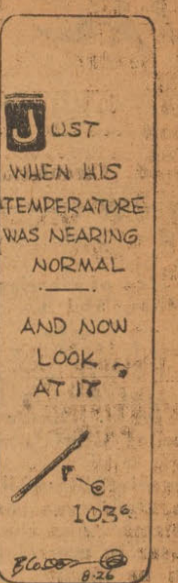 JUST
WHEN HIS
TEMPERATURE
WAS NEARING
NORMAL
AND NOW
LOOK
AT IT
103⁶
8-26